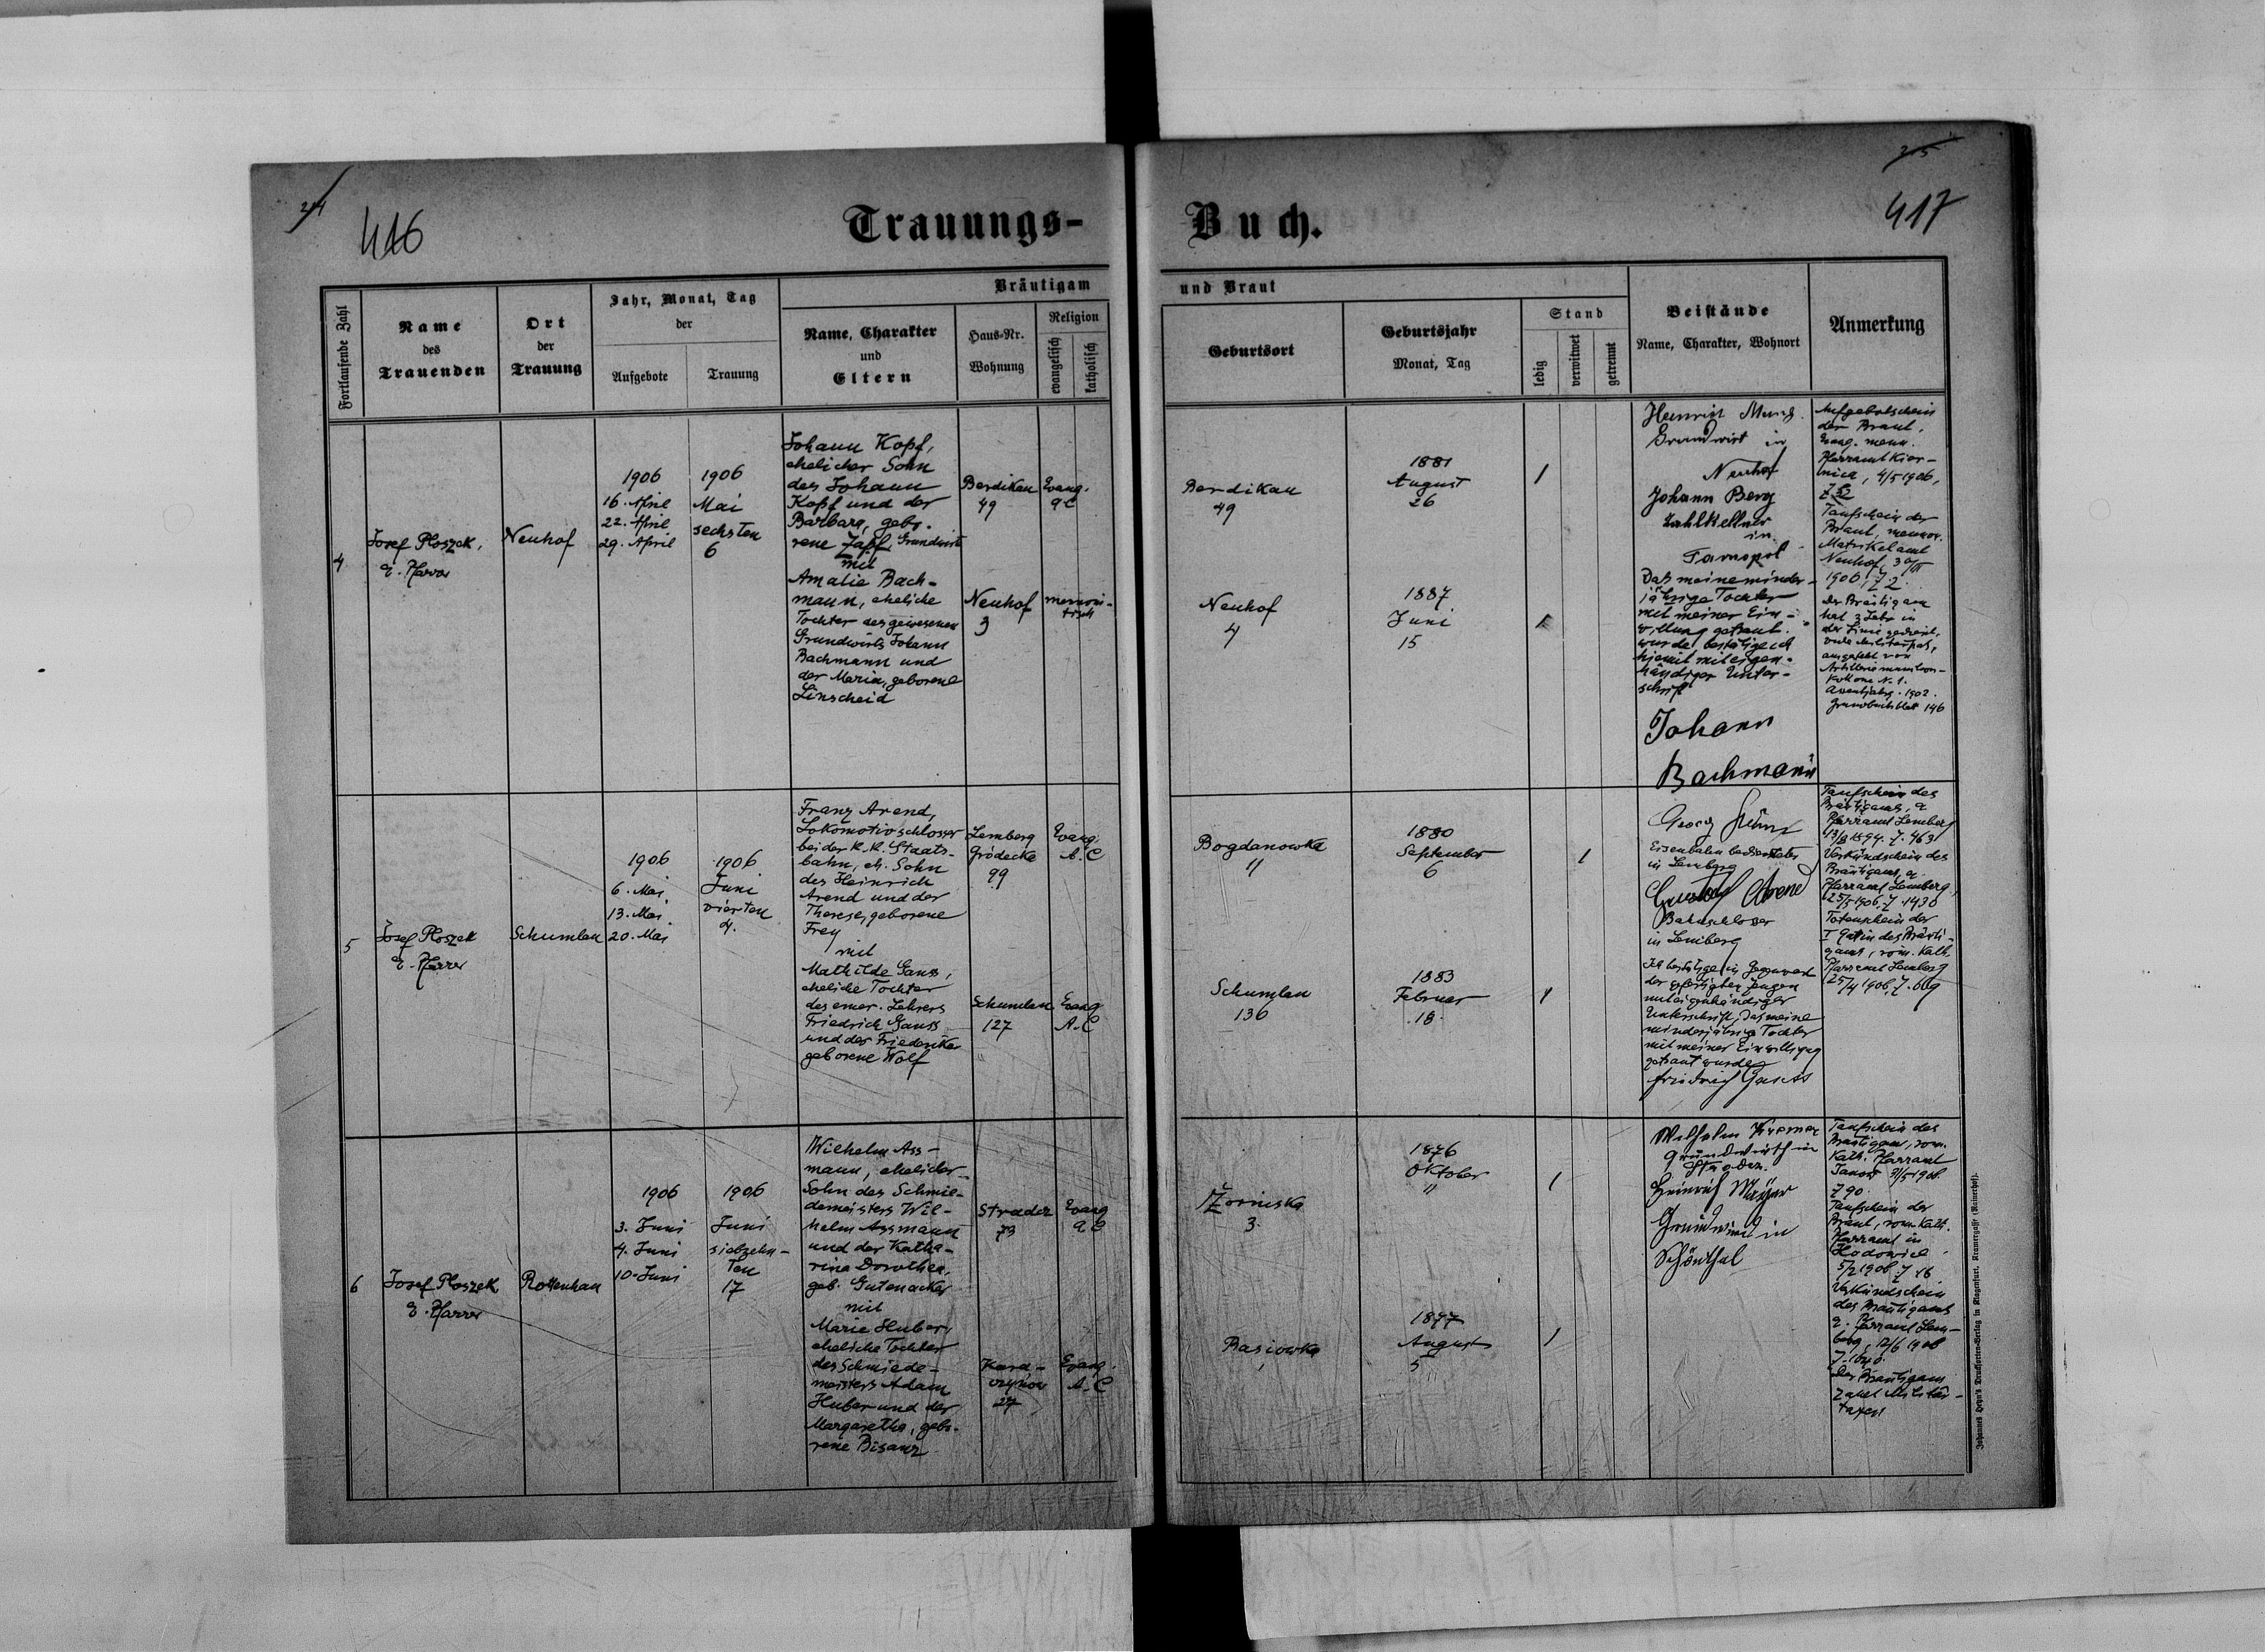 214
416
Trauungs-
Buch.
215
417
Fortlaufende Zahl
Name
des
Trauenden
Ort
der
Trauung
Jahr, Monat, Tag
der
Aufgebote
Trauung
Bräutigam
Name, Charakter
und
Eltern
Haus-Nr.
Wohnung
Religion
evangelisch
katholisch
und Braut
Geburtsort
Geburtsjahr
Monat, Tag
Stand
ledig
verwitwet
getrennt
Beistände
Name, Charakter, Wohnort
Anmerkung
4
Josef Ploszek,
e. Pfarrer
Neuhof
1906
16. April
22. April
29. April
1906
Mai
sechsten
6
Johann Kopf,
ehelicher Sohn
des Johann
Kopf und der
Barbara, gebo-
rene Zapf, Grundwirt
mit
Amalie Bach-
mann, eheliche
Tochter des gewesenen
Grundwirts Johann
Bachmann und
der Maria, geborene
Linscheid
Berdikau
49
Evang.
A C
Neuhof
3
mennoni-
tisch
Berdikau
49
1881
August
26
1
Neuhof
4
1887
Juni
15
1
Heinrich
Grundwirt in
Neuhof
Johann Berg
Zahlkellner
in
Tarnopol
Daß meine minder-
jährige Tochter
mit meiner Ein-
willung getraut
wurde, bestätige ich
hiemit mit eigen-
händiger Unter-
schrift
Johann
Bachmann
Aufgebotschein
der Braut,
Evang. menn.
Pfarramt Kier-
nica, 4/5 1906,
Taufschein der
Braut, mennon.
Matrikelamt
Neuhof,
1906, Z 2.
Der Bräutigam
hat 3 Jahre in
der Linie gedient,
vide Militärpaß,
ausgestellt von
Artilleriemunition-
Kolonne N. 1.
Assentjahrg. 1902.
Grundbuchblatt 146
5
Josef Ploszek
e. Pfarrer
Schumlau
1906
6. Mai
13. Mai
20. Mai
1906
Juni
vierten
4.
Franz Arend,
Lokomotivschlosser
bei der k. k. Staats-
bahn, eh. Sohn
des Heinrich
Arend und der
Therese, geborene
Frey
mit
Mathilde Gauss,
eheliche Tochter
des emer. Lehrers
Friedrich Gauss
und der Friederike
geborene Wolf
Lemberg
Gródecka
99
Evang.
A. C
Schumlau
127
Evang
A. C
Bogdanowka
11
1880
September
6
1
Schumlau
136
1883
Februar
18.
1
Georg
Eisenbahn bediensteter
in Lemberg
Gustav Arend
Bahnschlosser
in Lemberg
Ich bestätige in Gegenwart
der gefertigten Zeugen
mit eigenhändiger
Unterschrift, das meine
minderjährige Tochter
mit meiner Einwilligung
getraut wurde
Friedrich Gauss
Taufschein des
Bräutigams, e
Pfarramt Lemberg
13/8 1894. Z. 463
Verkündschein des
Bräutigams, e.
Pfarramt Lemberg,
25/5 1906, Z. 1430
Totenschein der
I Gattin des Bräuti-
gams, röm. kath.
Pfarramt Lemberg
25/4 1906, Z. 609
6
Josef Ploszek
e. Pfarrer
Rottenhan
1906
3. Juni
4. Juni
10. Juni
1906
Juni
siebzehn-
ten
17
Wilhelm Ass-
mann, ehelicher
Sohn des Schmie-
demeisters Wil-
helm Assmann
und der Katha-
rina Dorothea,
geb. Gutenacker
mit
Marie Huber,
eheliche Tochter
des Schmiede-
meisters Adam
Huber und der
Margaretha, gebo-
rene Bisanz
Stradcz
73
Evang
A C
Karа-
czynow
27
Evang.
A. C
Zorniska
3.
1876
Oktober
11
1
Basiowka
1877
August
5
1
Wilhelm Kremer
Grundwirth in
Stradcz.
Heinrich Mayer
Grundwirth in
Schönthal
Taufschein des
Bräutigam, rom.
kath. Pfarramt
Janow 31/5 1906
Z 90.
Taufschein der
Braut, rom. kath.
Pfarramt in
Hodowica
5/2 1906 Z 16
Verkündschein
des Bräutigams
e. Pfarramt Lem-
berg, 12/6 1906
Z. 1640.
Der Bräutigam
zahlt Militär-
taxen
Johannes Heyn's Drucksorten-Verlag in Klagenfurt, Kramergasse (Rainerhof).